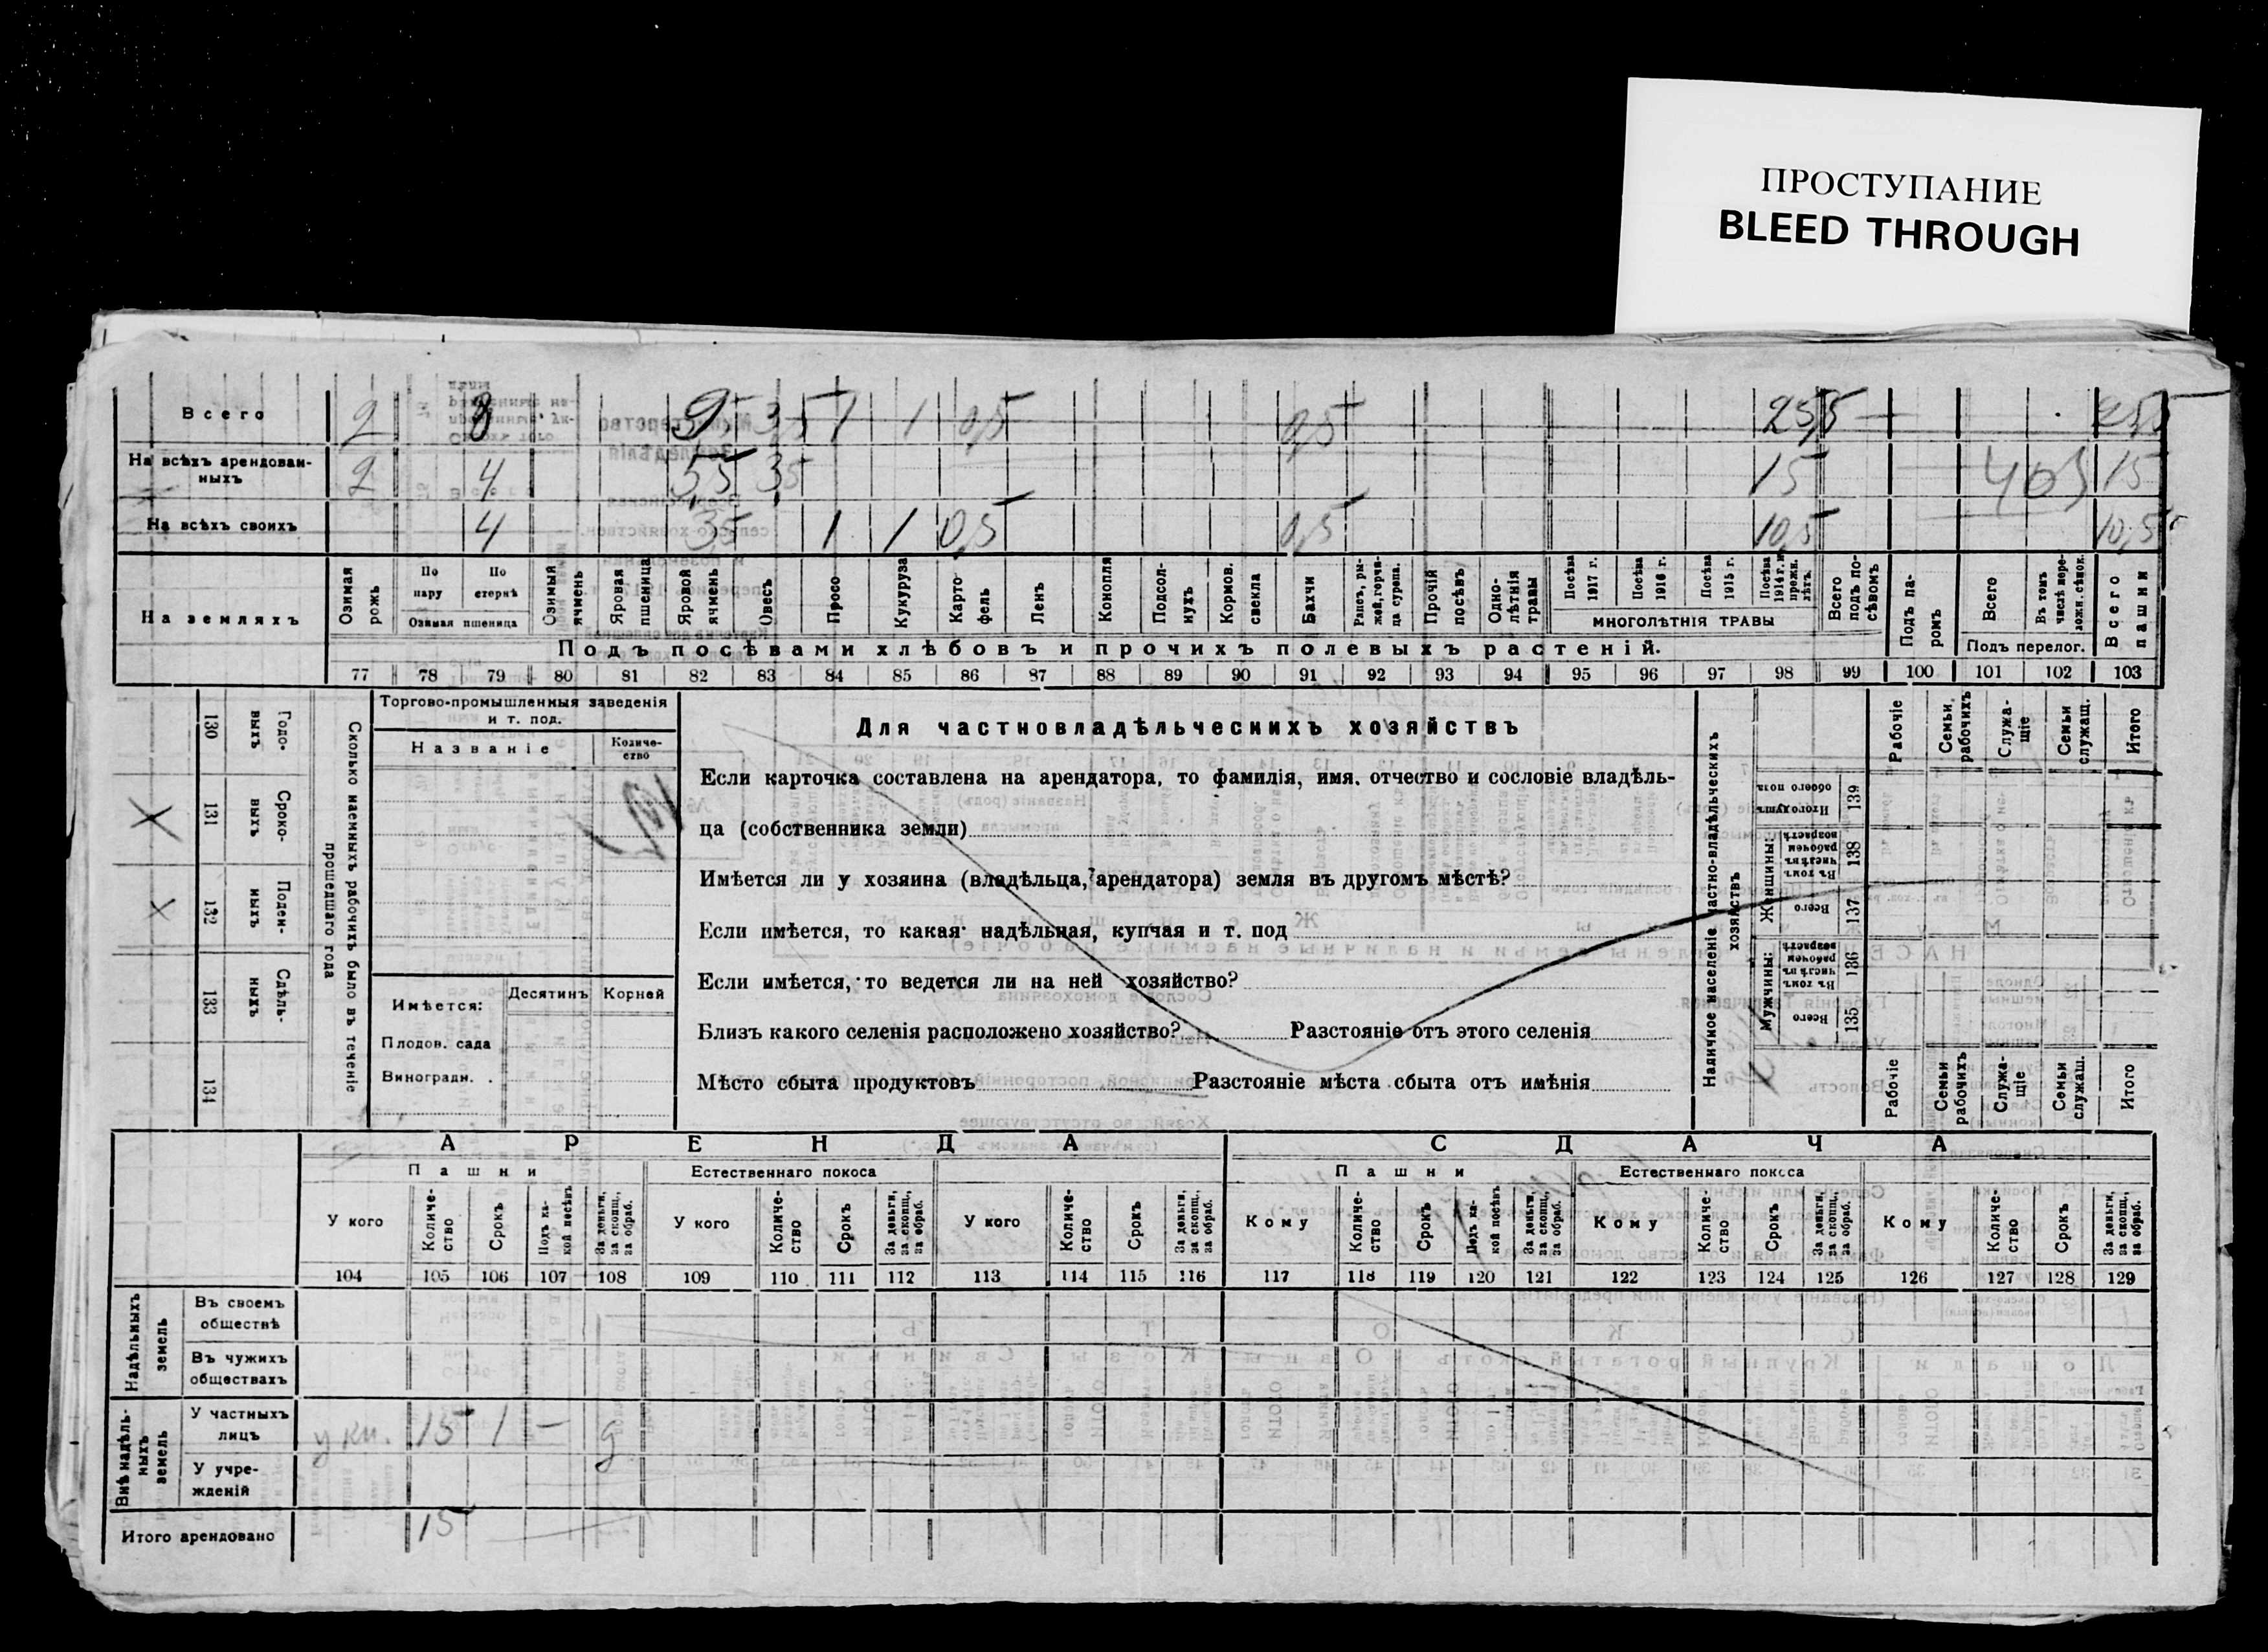 ПРОСТУПАНИЕ
BLEED THROUGH
Всего 2 8 9, 3,5 1 1 0,5 0,5 25,5 25,5
На всѣхъ арендован-
ныхъ 2 4 5,5 35 15 403 15
На всѣхъ своихъ 4 3,5 1 1 0,5 0,5 10,5 10,5
На земляхъ
Озимая рожь
По пару
По стернѣ
Озимая пшеница
Озимый ячмень
Яровая пшеница
Яровой ячмень
Овесъ
Просо
Кукуруза
Карто-
фель
Ленъ
Конопля
Подсол-
нухъ
Кормов.
свекла
Бахчи
Рапсъ, ры-
жей, горчи-
ца сурепа.
Прочій
посѣвъ
Одно-
лѣтнія
травы
Посѣва
1917 г.
Посѣва
1916 г.
Посѣва
1915 г.
Посѣва
1914 г. и
прежн.
лѣтъ.
МНОГОЛѢТНІЯ ТРАВЫ
Всего
подъ по-
сѣвомъ
Подъ па-
ромъ
Всего
Въ томъ
числѣ пере-
ложн. сѣнок.
Подъ перелог.
Всего
пашни
Подъ посѣвами хлѣбовъ и прочихъ полевыхъ растеній.
77 78 79 80 81 82 83 84 85 86 87 88 89 90 91 92 93 94 95 96 97 98 99 100 101 102 103
Сколько наемныхъ рабочихъ было въ теченіе
прошедшаго года
Годо-
выхъ
130
Сроко-
выхъ
131
Поден-
ныхъ
132
Сдѣль-
ныхъ
133
134
Торгово-промышленныя заведенія
и т. под.
Названіе
Количе-
ство
Имѣется: Десятинъ Корней
Плодов. сада
Виноградн.
Для частновладѣльческихъ хозяйствъ
Если карточка составлена на арендатора, то фамилія, имя, отчество и сословіе владѣль-
ца (собственника земли)
Имѣется ли у хозяина (владѣльца, арендатора) земля въ другомъ мѣстѣ?
Если имѣется, то какая надѣльная, купчая и т. под
Если имѣется, то ведется ли на ней хозяйство?
Близъ какого селенія расположено хозяйство? Разстояніе отъ этого селенія
Мѣсто сбыта продуктовъ Разстояніе мѣста сбыта отъ имѣнія
Наличное населеніе частно-владѣльческихъ
хозяйствъ
Рабочіе
Семьи
рабочихъ
Служа-
щіе
Семьи
служащ.
Итого
Итого душъ
обоего пола
139
Женщины:
Въ томъ
числѣ въ
рабочем
возрастѣ
138
Всего
137
Мужчины:
Въ томъ
числѣ въ
рабочем
возрастѣ
136
Всего
135
Рабочіе
Семьи
рабочихъ
Служа-
щіе
Семьи
служащ.
Итого
АРЕНДА СДАЧА
Пашни Естественнаго покоса Пашни Естественнаго покоса
У кого
Количе-
ство
Срокъ
Подъ ка-
кой посѣвъ
За деньги,
за скопщ.,
за обраб.
У кого
Количе-
ство
Срокъ
За деньги,
за скопщ.,
за обраб.
У кого
Количе-
ство
Срокъ
За деньги,
за скопщ.,
за обраб.
Кому
Количе-
ство
Срокъ
Подъ ка-
кой посѣвъ
За деньги,
за скопщ.,
за обраб.
Кому
Количе-
ство
Срокъ
За деньги,
за скопщ.,
за обраб.
Кому
Количе-
ство
Срокъ
За деньги,
за скопщ.,
за обраб.
104 105 106 107 108 109 110 111 112 113 114 115 116 117 118 119 120 121 122 123 124 125 126 127 128 129
Надѣльныхъ
земель
Въ своемъ
обществѣ
Въ чужихъ
обществахъ
Внѣ надѣль-
ныхъ
земель
У частныхъ
лицъ у кн. 15 1 — д
У учре-
жденій
Итого арендовано 15